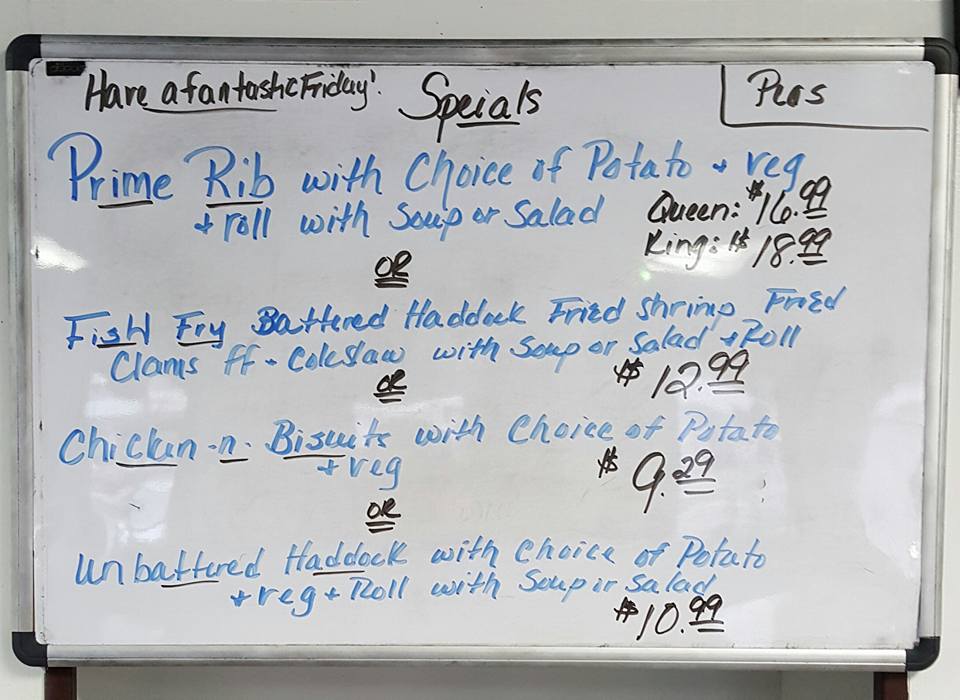 Have a fantastic Friday!
Speials
Peas
Prime Rib with Choice of Potato + veg
+ roll with Soup or Salad
Queen: $16.99
King: $18.99
OR
Fish Fry Battered Haddock Fried Shrimp Fried
Clams ff - Coleslaw with Soup or Salad + Roll
$12.99
OR
Chicken -n- Biscuits with Choice of Potato
+ veg
$9.29
OR
Unbattered Haddock with Choice of Potato
+ veg + Roll with Soup or Salad
$10.99